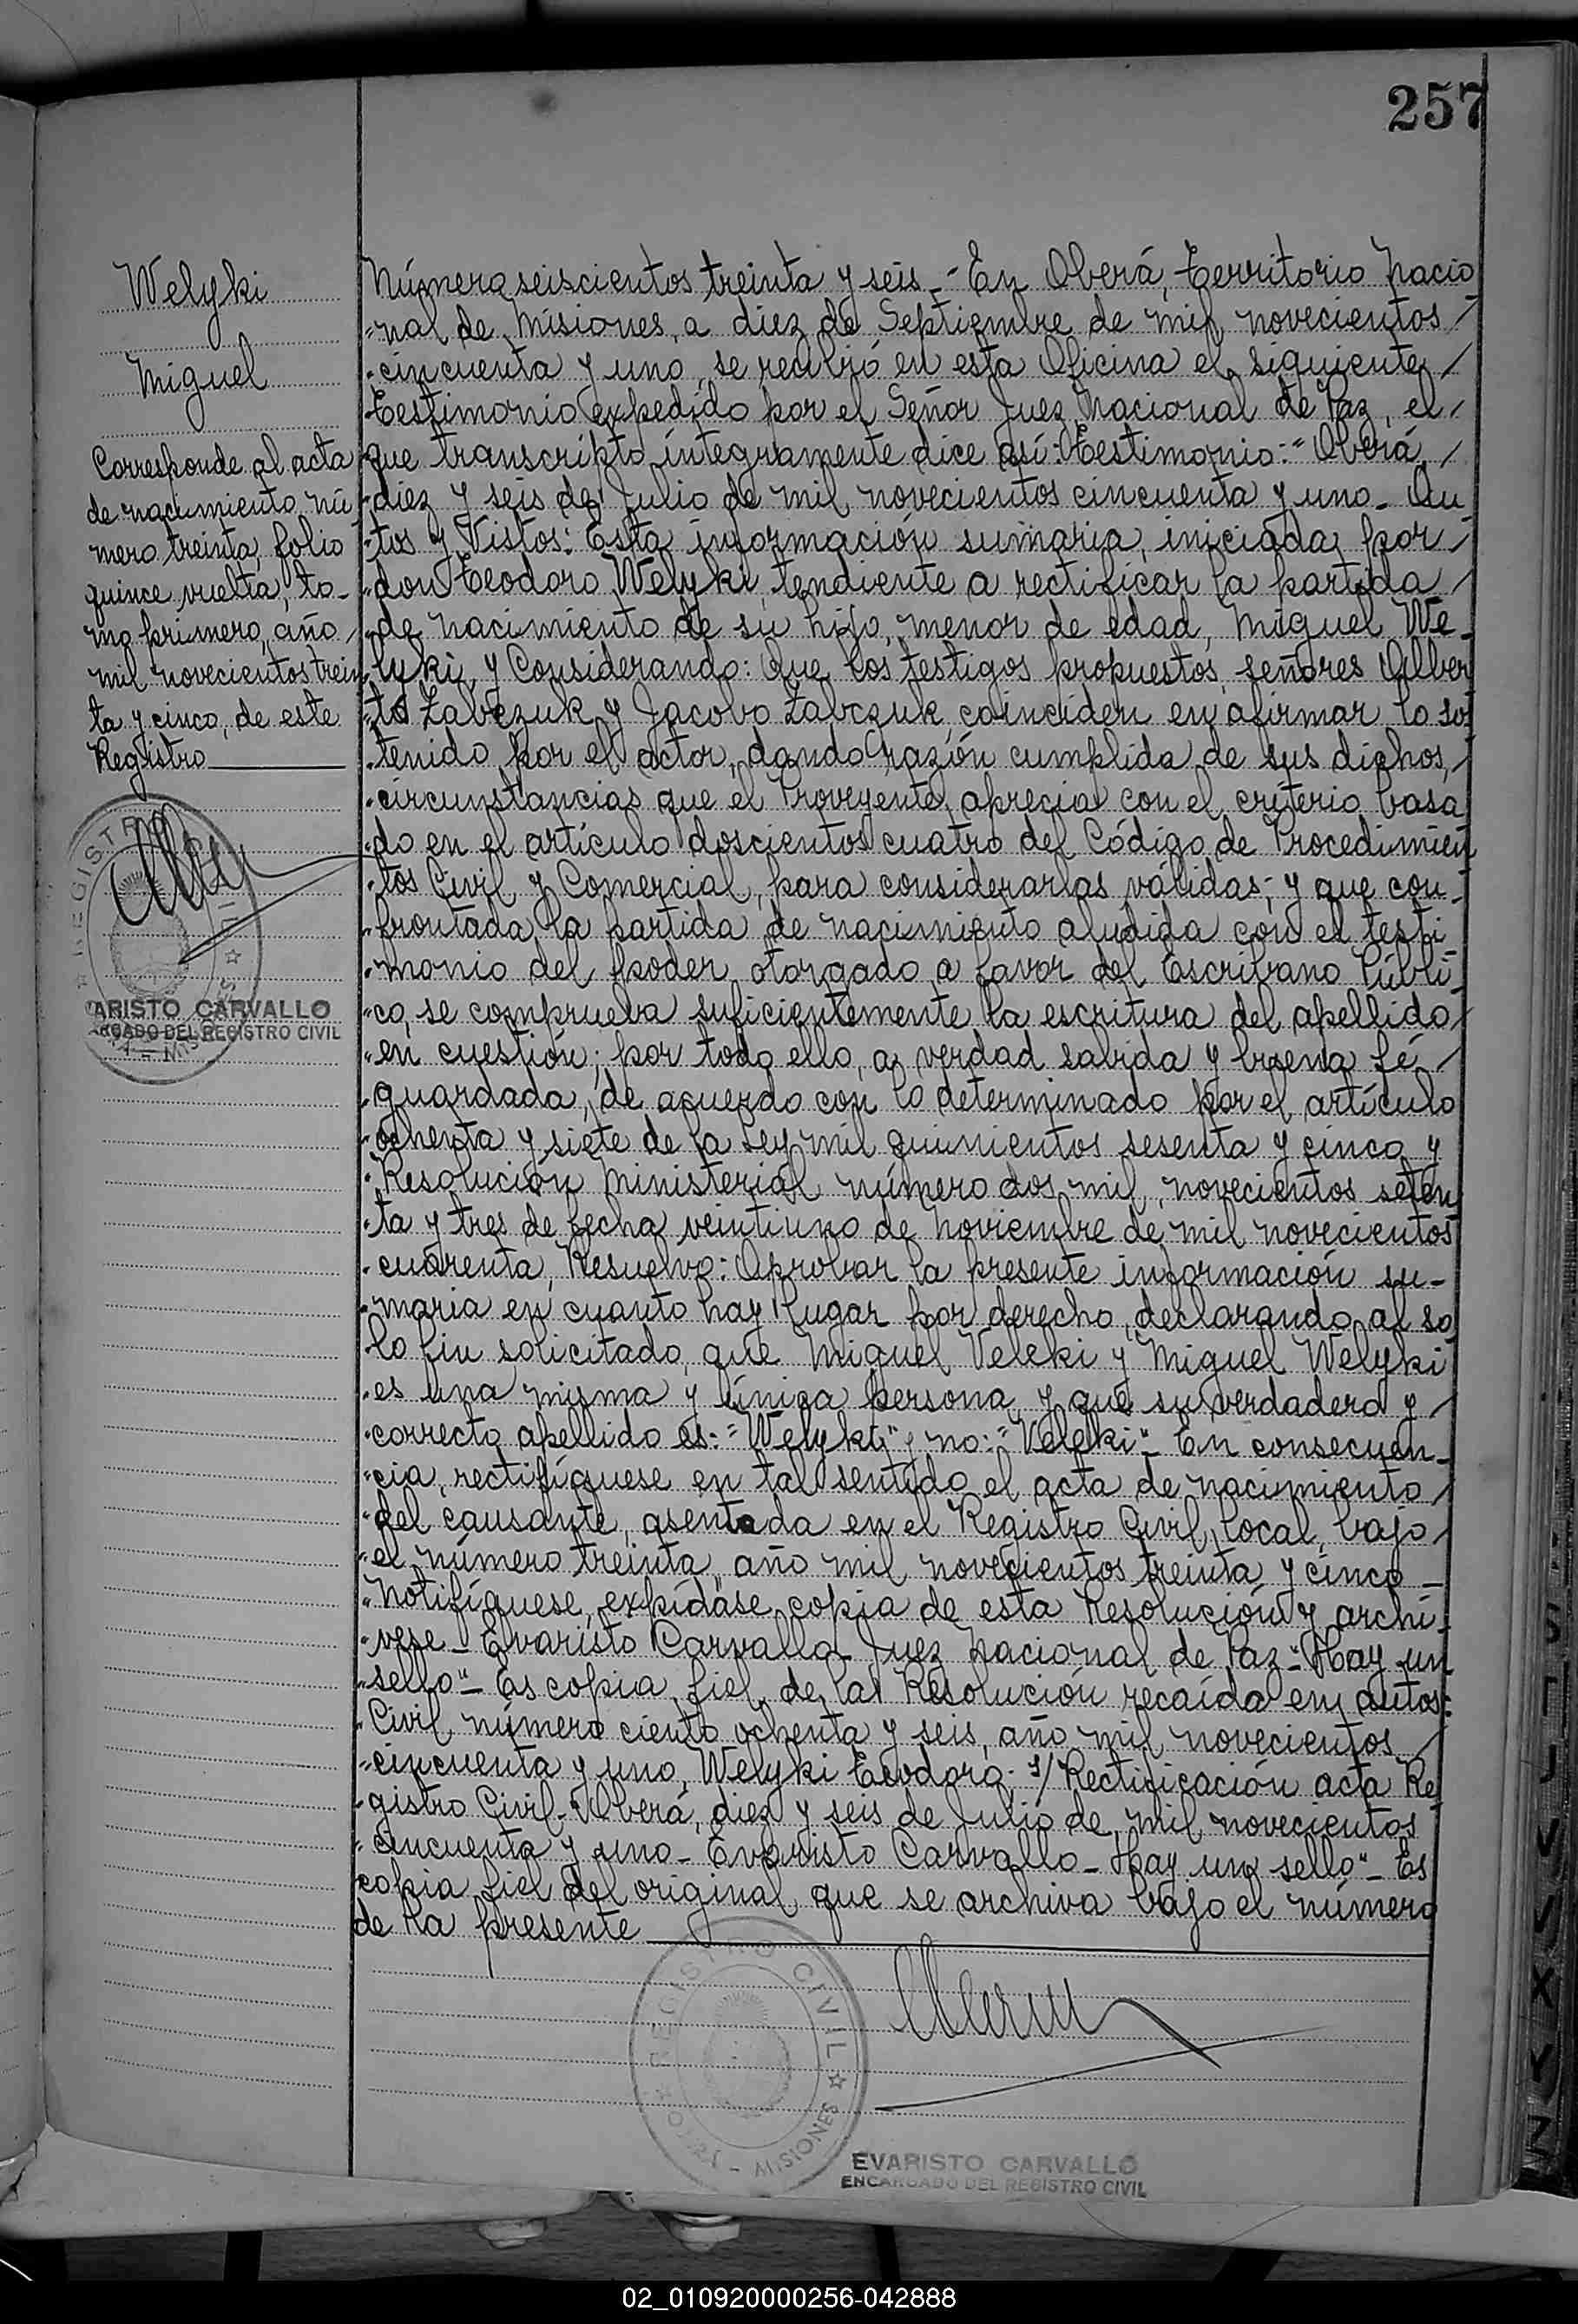 257
Welyki
Miguel
Corresponde al acta
de nacimiento nú-
mero treinta, folio
quince vuelta, to-
mo primero, año
mil novecientos trein
ta y cinco, de este
Registro
REGISTRO CIVIL
ARISTO CARVALLO
ARGADO DEL REGISTRO CIVIL
Número seiscientos treinta y seis_ En Oberá, territorio nacio
"nal de Misiones, a diez de Septiembre de mil novecientos /
"cincuenta y uno, se recibió en esta Oficina el siguiente /
testimonio expedido por el Señor Juez Nacional de Paz, el /
que transcripto íntegramente dice así: Testimonio: "Oberá, /
"diez y seis de Julio de mil novecientos cincuenta y uno_ Au
"tos y Vistos: Esta información sumaria, iniciada por /
"don Teodoro Welyki, tendiente a rectificar la partida /
"de nacimiento de su hijo, menor de edad, Miguel We_
"lyki, y Considerando: Que los testigos propuestos, señores Alber
"to Zabczuk y Jacobo Zabczuk, coinciden en afirmar lo sos
"tenido por el actor, dando razón cumplida de sus dichos, /
"circunstancias que el Proveyente aprecia con el criterio basa
"do en el artículo doscientos cuatro del Código de Procedimien
"tos Civil y Comercial, para considerarlas válidas; y que con_
"frontada la partida de nacimiento aludida con el testi
"monio del poder otorgado a favor del Escribano Públi_
"co, se comprueba suficientemente la escritura del apellido /
"en cuestión; por todo ello, a verdad sabida y buena fé /
"guardada, de acuerdo con lo determinado por el artículo
"ochenta y siete de la Ley mil quinientos sesenta y cinco y
"Resolución Ministerial número dos mil novecientos seten
"ta y tres de fecha veintiuno de Noviembre de mil novecientos
"cuarenta, Resuelvo: Aprobar la presente información su_
"maria en cuanto hay lugar por derecho, declarando al so
"lo fin solicitado que Miguel Veleki y Miguel Welyki
"es una misma y única persona y que su verdadero y /
"correcto apellido es: "Welyki" y no: "Veleki"_ En consecuen_
"cia, rectifíquese en tal sentido el acta de nacimiento /
"del causante, asentada en el Registro Civil local, bajo /
"el número treinta, año mil novecientos treinta y cinco_
"Notifíquese, expídase copia de esta Resolución y archí_
"vese_ Evaristo Carvallo_ Juez Nacional de Paz_ "Hay un
"sello"_ Es copia fiel de la Resolución recaída en autos:
"Civil número ciento ochenta y seis, año mil novecientos /
"cincuenta y uno, Welyki Teodoro; s/ Rectificación acta Re
"gistro Civil_ Oberá, diez y seis de Julio de mil novecientos
"cincuenta y uno_ Evaristo Carvallo_ Hay un sello"_ Es
copia fiel del original que se archiva bajo el número
de la presente
REGISTRO CIVIL
OBERA - MISIONES
EVARISTO CARVALLO
ENCARGADO DEL REGISTRO CIVIL
02_010920000256-042888